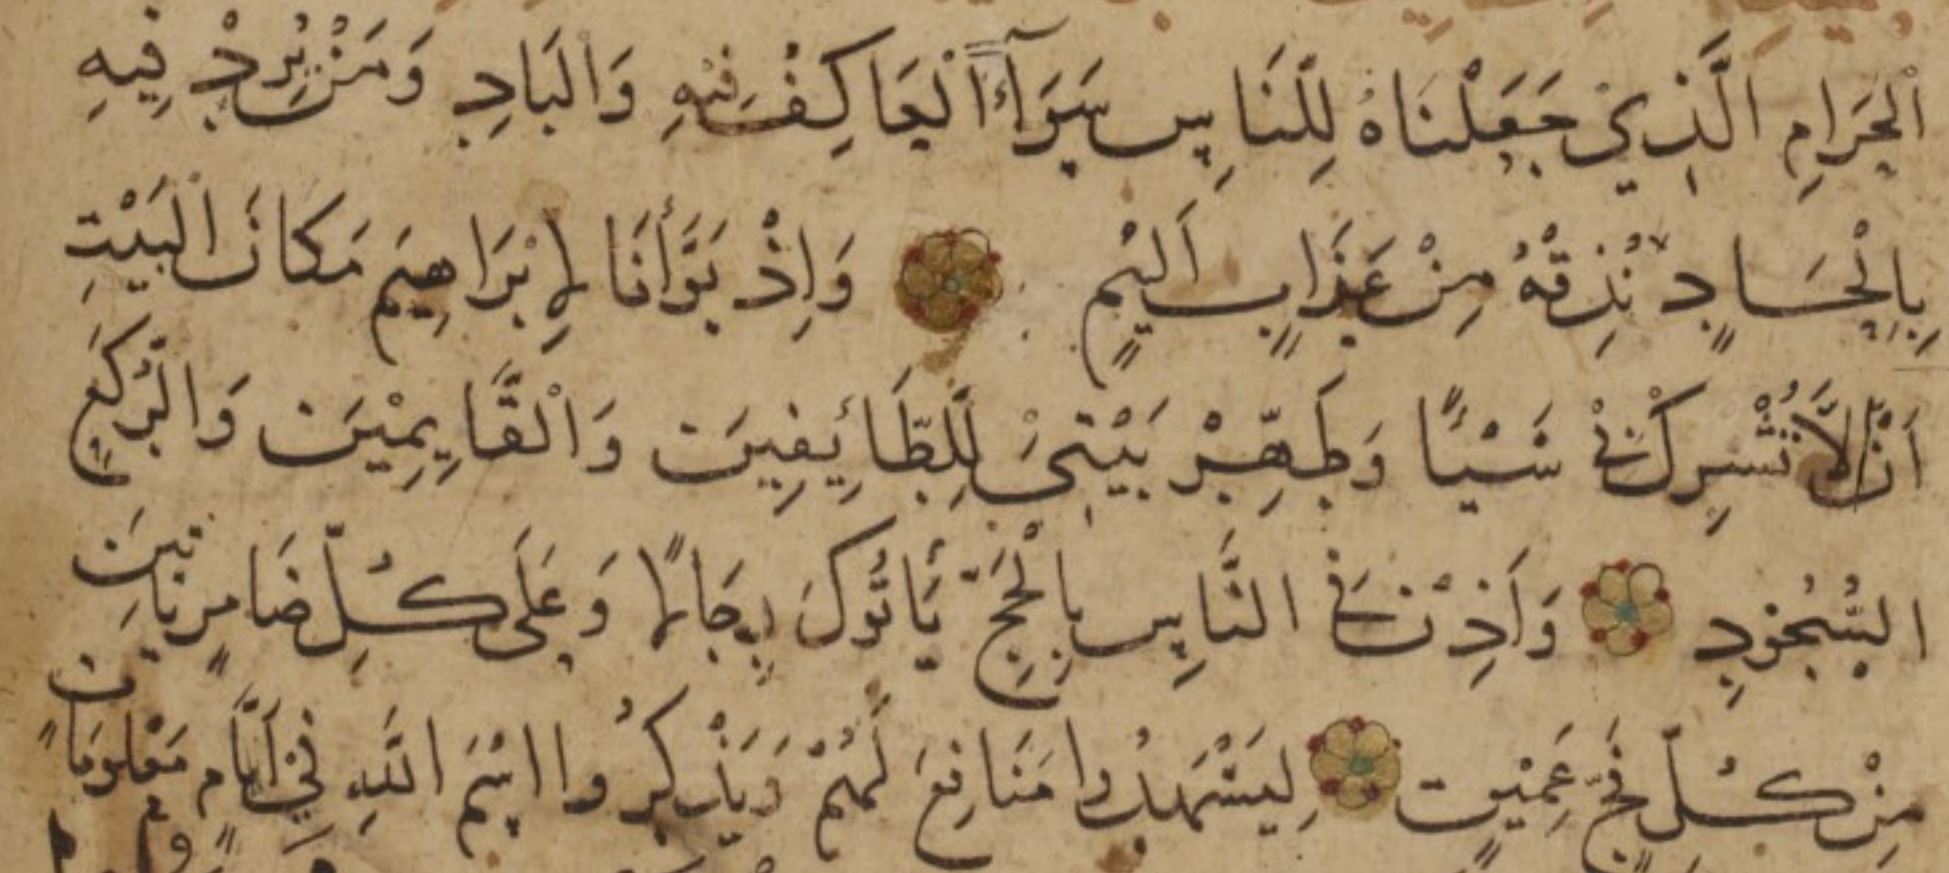 اَلْحَرَامِ الَّذِيْ جَعَلْنَاهُ لِلنَّاسِ سَوَآءً اَلْعَاكِفُ فِيْهِ وَالْبَادِ وَمَنْ يُرِدْ فِيهِ
بِاِلْحَادٍ نُذِقْهُ مِنْ عَذَابٍ اَلِيْمٍ وَاِذْ بَوَّأْنَا لِاِبْرَاهِيمَ مَكَانَ الْبَيْتِ
اَنْ لَّا تُشْرِكْ بِيْ شَيْـًٔا وَطَهِّرْ بَيْتِيَ لِلطَّائِفِينَ وَالْقَايِمِيْنَ وَالرُّكَّعِ
السُّجُوْدِ وَاَذِّنْ فِي النَّاسِ بِالْحَجِّ يَأْتُوكَ رِجَالًا وَعَلَى كُلِّ ضَامِرٍ يَأْتِينَ
مِنْ كُلِّ فَجٍّ عَمِيْقٍ لِيَشْهَدُوا مَنَافِعَ لَهُمْ وَيَذْكُرُوا اسْمَ اللَّهِ فِيْ اَيَّامٍ مَعْلُومَاتٍ